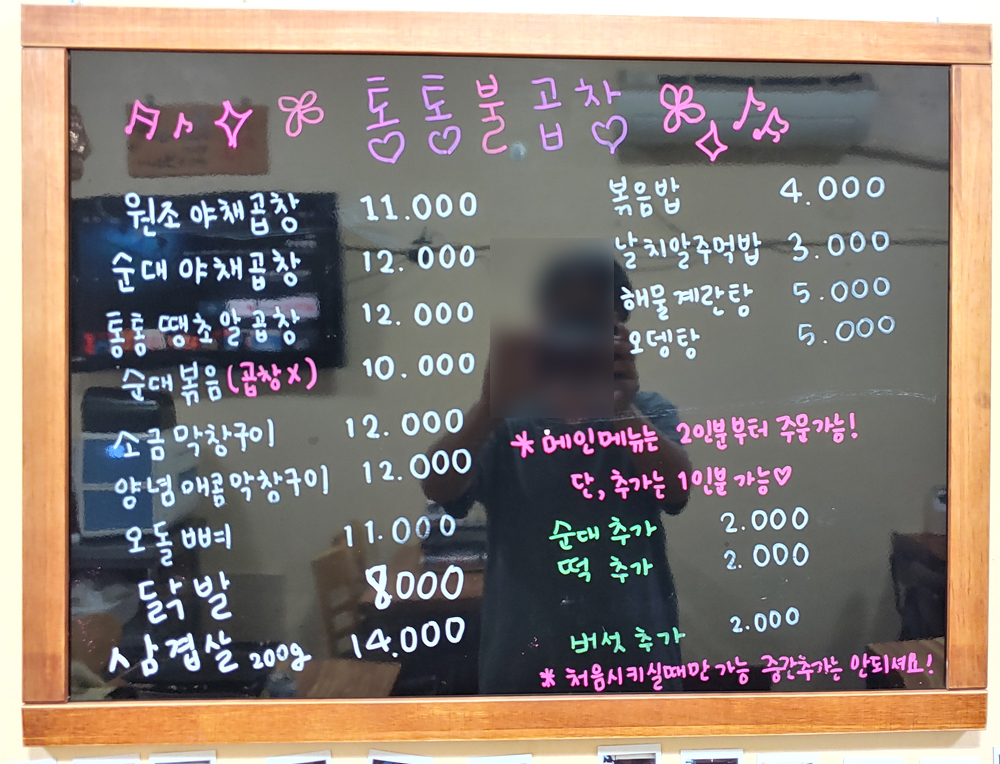 통통불곱창
원조 야채곱창 11.000
순대 야채곱창 12.000
통통 땡초알곱창 12.000
순대볶음(곱창X) 10.000
소금막창구이 12.000
양념매콤막창구이 12.000
오돌뼈 11.000
닭발 8000
삼겹살 200g 14.000
볶음밥 4.000
날치알주먹밥 3.000
해물계란탕 5.000
오뎅탕 5.000
* 메인메뉴는 2인분부터 주문가능!
단, 추가는 1인분 가능♡
순대 추가 2.000
떡 추가 2.000
버섯 추가 2.000
* 처음시키실때만 가능 중간추가는 안되세요!